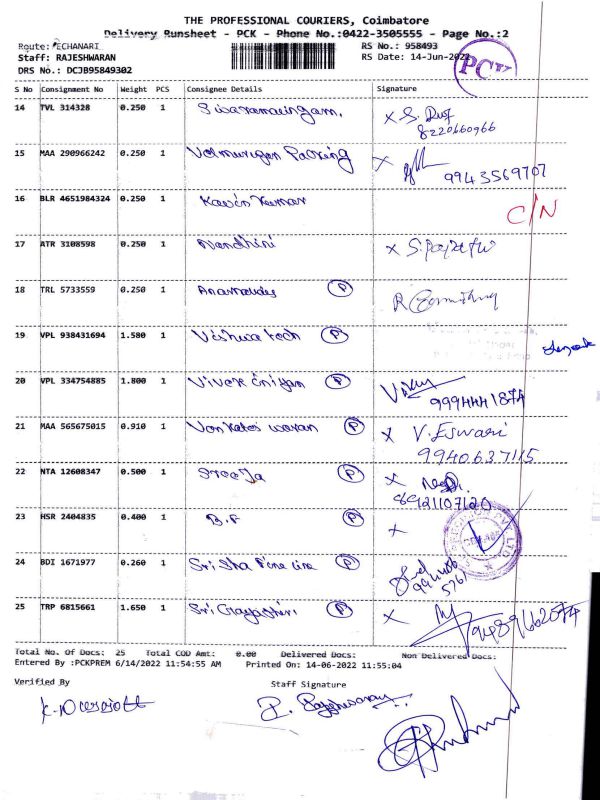 THE PROFESSIONAL COURIERS, Coimbatore
Delivery Runsheet - PCK - Phone No.:0422-3505555 - Page No.:2
Route: ECHANARI RS No.: 958493
Staff: RAJESHWARAN RS Date: 14-Jun-2022
DRS No.: DCJB95849302
PCK
S No Consignment No Weight PCS Consignee Details Signature
14 TVL 314328 0.250 1 Sivaramalingam. x S.
8220660966
15 MAA 290966242 0.250 1 Velmurugan Packing x
9943569707
16 BLR 4651984324 0.250 1 Kavin Kumar
C/N
17 ATR 3108598 0.250 1 Nandhini x S.
18 TRL 5733559 0.250 1 P R
19 VPL 938431694 1.580 1 Vishwa tech P
20 VPL 334754885 1.800 1 P
9994441874
21 MAA 565675015 0.910 1 P x V. Eswari
9940637115
22 NTA 12608347 0.500 1 SreeJa P x
8921107120
23 HSR 2404835 0.400 1 B.F P x
24 BDI 1671977 0.260 1 P
25 TRP 6815661 1.650 1 Sri Gayathiri P x
9489662074
Total No. Of Docs: 25 Total COD Amt: 0.00 Delivered Docs: Non Delivered Docs:
Entered By :PCKPREM 6/14/2022 11:54:55 AM Printed On: 14-06-2022 11:55:04
Verified By Staff Signature
P. Rajeshwaran